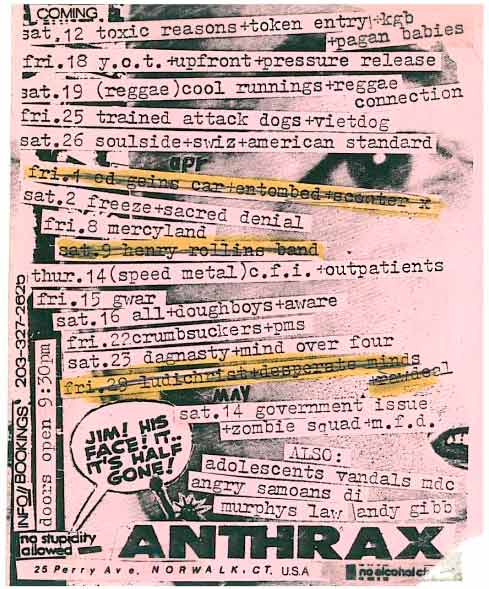 COMING
sat.12 toxic reasons+token entry+kgb
+pagan babies
fri.18 y.o.t.+upfront+pressure release
sat.19 (reggae)cool runnings+reggae
connection
fri.25 trained attack dogs+vietdog
sat.26 soulside+swiz+american standard
apr
fri.1 ed geins car+entombed+scenter x
sat.2 freeze+sacred denial
fri.8 mercyland
sat.9 henry rollins band
thur.14(speed metal)c.f.i.+outpatients
fri.15 gwar
sat.16 all+doughboys+aware
fri.22crumbsuckers+pms
sat.23 dagnasty+mind over four
fri.29 ludichrist+desperate minds
+rawdeal
MAY
sat.14 government issue
+zombie squad+m.f.d.
ALSO:
adolescents vandals mdc
angry samoans di
murphys law andy gibb
JIM! HIS
FACE! IT..
IT'S HALF
GONE!
INFO//BOOKINGS' 203-327-2626
doors open 9:30pm
no stupidity
allowed
ANTHRAX
25 Perry Ave, NORWALK, CT. U.S.A
no alcohol